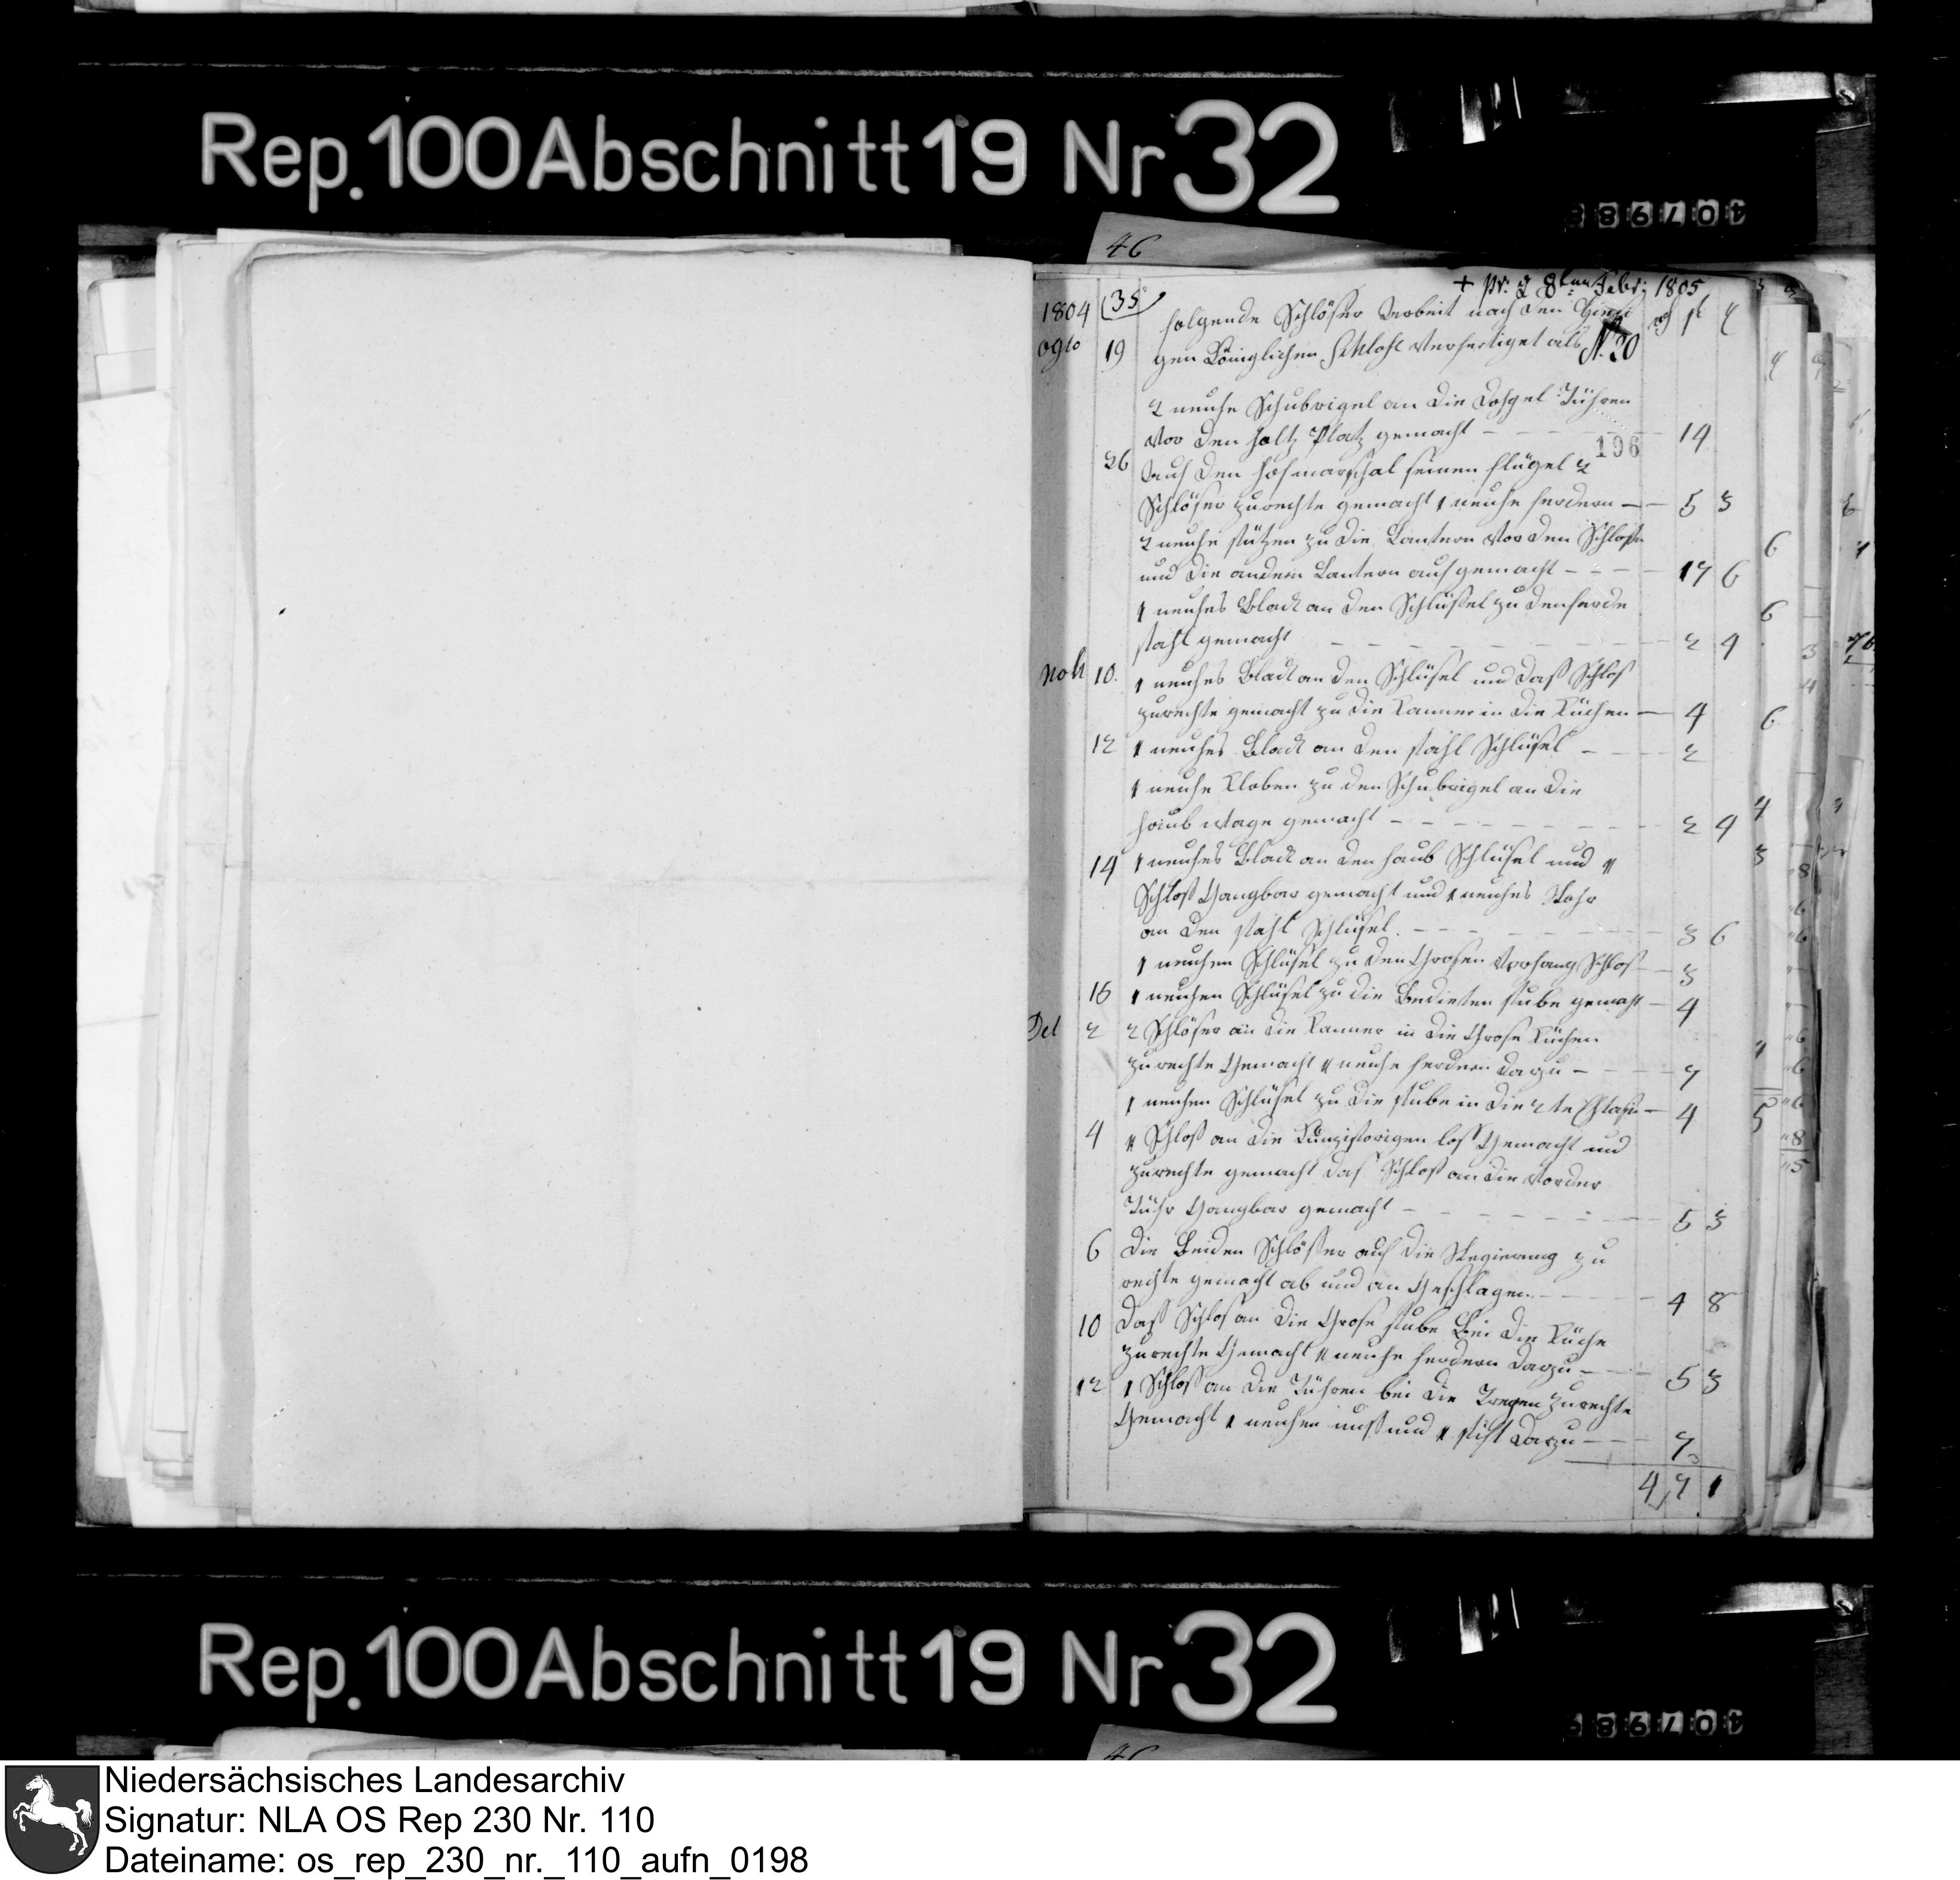 Rep. 100 Abschnitt 19 Nr 32
46
+ pr: d 8ten Febr: 1805
1804 35 folgende Schlößer Arbeit nach den
19 gen Königlichen Schlohse Verfertiget als N. 20
2 neuhe Schubrigel an die Tühren
Vor den holtz Platz gemacht 14
196
26 Auf den hofmarschal seinen flügel 2
Schlößer zurechte gemacht 1 neuhe ferdern 5 3
2 neuhe stützen zu die Lantern Vor den Schloße
und die andern Lantern auf gemacht 17 6
1 neuhes Bladt an den Schlüßel zu den ferde
stahl gemacht 2 4
10. 1 neuhes Bladt an den Schlüßel und daß Schloß
zurechte gemacht zu die Kammer in die Küchen 4
12 1 neuhes Bladt an den stahl Schlüßel 2
1 neuhe Kloben zu den Schubrigel an die
haub wage gemacht 2 4
14 1 neuhes Bladt an den haub Schlüßel und 1
Schloß Gangbar gemacht und 1 neuhes Rohr
an den stahl Schlüßel 3 6
1 neuhen Schlüßel zu den Großen Vorhang Schloß 3
16 1 neuhen Schlüßel zu die Bedinten stube gemacht 4
2 2 Schlößer an die Kammer in die Große Küchen
zurechte Gemacht 1 neuhe ferdern dazu 7
1 neuhen Schlüßel zu die stube in die 2 te 4
4 1 Schloß an die loß Gemacht und
zurechte gemacht daß Schloß an die Vorder
Tühr Gangbar gemacht 5 3
6 Die Beiden Schlößer auf die Regierung zu
rechte gemacht ab und an Geschlagen 4 8
10 Daß Schloß an die Große stube Bei die Küche
zurechte Gemacht 1 neuhe ferdern dazu 5 3
12 1 Schloß an die Tühren bei die Trepen zurechte
Gemacht 1 neuhen nuß und 1 stift dazu 7
4 7 1
Rep. 100 Abschnitt 19 Nr 32
Niedersächsisches Landesarchiv
Signatur: NLA OS Rep 230 Nr. 110
Dateiname: os_rep_230_nr._110_aufn_0198